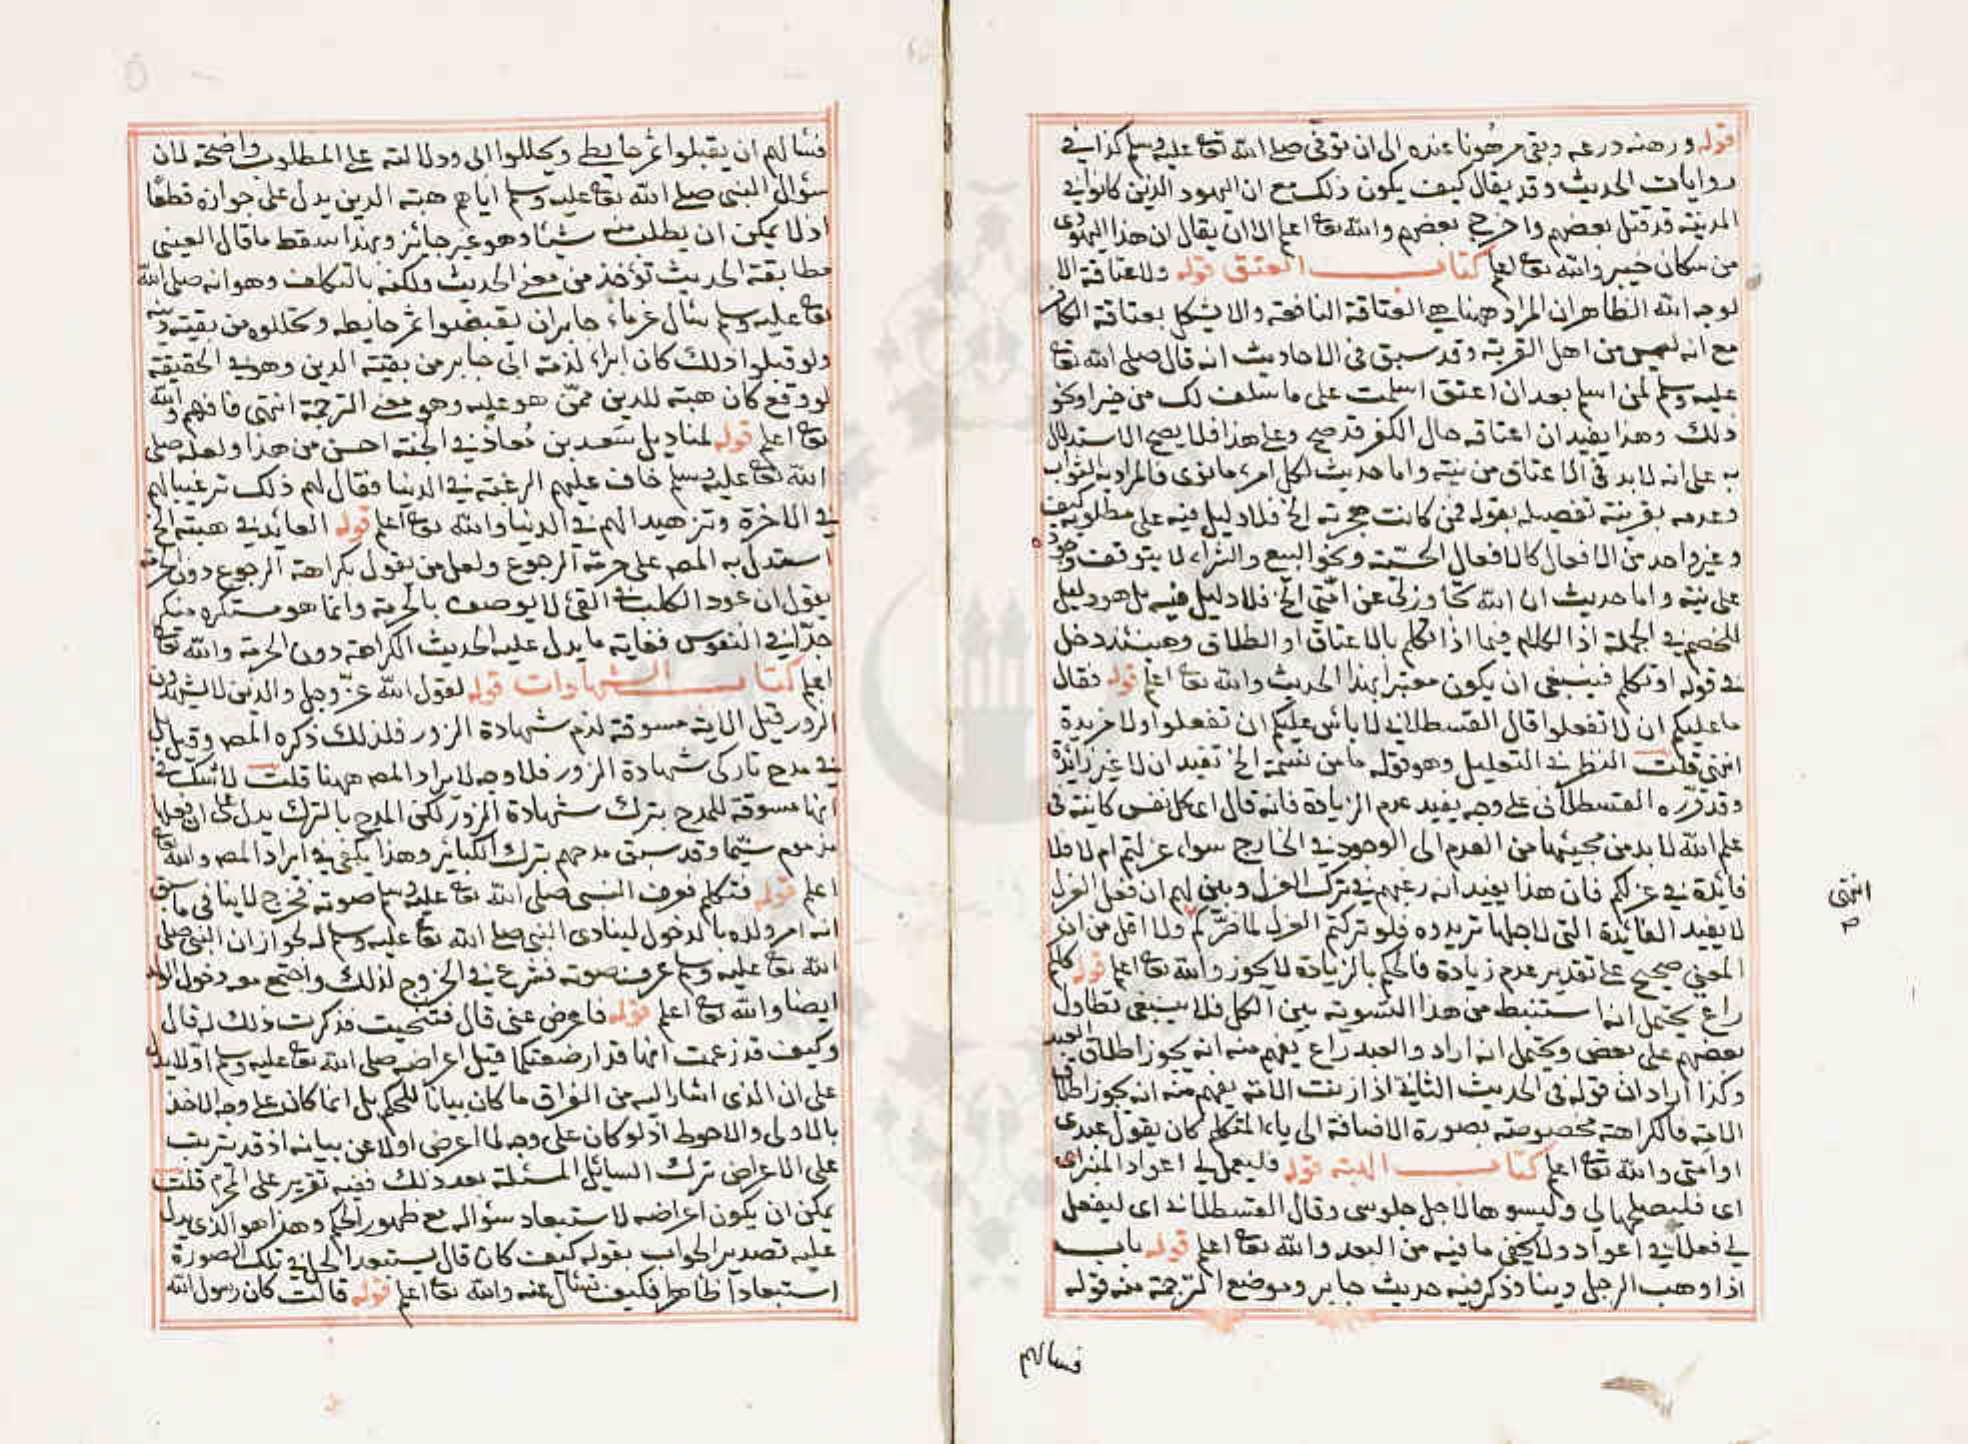 قوله ورهنه درعه وبقى مرهونا عنده الى ان توفي صلى الله تعا عليه وسلم كذا في
روايات الحديث وقد يقال كيف يكون ذلك مع ان اليهود الذين كانوا في
المدينة قد قتل بعضهم واخرج بعضهم والله تعا اعلم الا ان يقال ان هذا اليهودي
من سكان خيبر والله تعا اعلم كتاب العتق قوله ولا عتاقة الا
لوجه الله الظاهر ان المراد ههنا هي العتاقة النافعة والا يشكل بعتاقة الكافر
مع انه ليس من اهل القربة وقد سبق في الاحاديث انه قال صلى الله تعا
عليه وسلم لمن اسلم بعد ان اعتق اسلمت على ما سلف لك من خير او نحو
ذلك وهذا يفيد ان اعتاقه حال الكفر قد صح وعلى هذا فلا يصح الاستدلال
به على انه لابد في الاعتاق من نية واما حديث لكل امرء ما نوى فالمراد به الثواب
وعدمه بقرينة تفصيله بقوله فمن كانت هجرته الخ فلا دليل فيه على مطلوبه كيف
وغير واحد من الافعال كالافعال الحسية ونحو البيع والشراء لا يتوقف وجوده
على نية واما حديث ان الله تجاوز لي عن امتي الخ فلا دليل فيه بل هو دليل
للخصم في الجملة اذ الكلام فيما اذا تكلم بالاعتاق او الطلاق وحينئذ دخل
في قوله او تكلم فينبغي ان يكون معتبرا بهذا الحديث والله تعا اعلم قوله فقال
ما عليكم ان لا تفعلوا قال القسطلاني لا بأس عليكم ان تفعلوا ولا مزيدة
انتهى قلت النظر في التعليل وهو قوله ما من نسمة الخ تفيد ان لا غير زائدة
وقد قرره القسطلاني على وجه يفيد عدم الزيادة فانه قال اي كل نفس كائنة في
علم الله لا بد من مجيئها من العدم الى الوجود في الخارج سواء عزلتم ام لا فلا
فائدة في عزلكم فان هذا يفيد انه رغبهم في ترك العزل وبين لهم ان فعل العزل
لا يفيد الفائدة التي لاجلها تريدوه فلو تركتم العزل لما ضركم ولا اقل من ان
المعنى صحيح على تقدير عدم زيادة فالحكم بالزيادة لا يجوز والله تعا اعلم قوله كلكم
راع يحتمل انه استنبط من هذا التسوية بين الكل فلا ينبغي تطاول
بعضهم على بعض ويحتمل انه اراد والعبد راع يفهم منه انه يجوز اطلاق العبد
وكذا اراد ان قوله في الحديث الثاني اذا زنت الامة يفهم منه انه يجوز اطلاق
الامة فالكراهة مخصوصة بصورة الاضافة الى ياء المتكلم كان يقول عبدي
او امتي والله تعا اعلم كتاب الهبة قوله فليعمل لي اعواد المنبر اي
اي فليصلحها لي وليسوها لاجل جلوسي وقال القسطلاني اي ليفعل
لي فعلا في اعواد ولا يخفى ما فيه من البعد والله تعا اعلم قوله باب
اذا وهب الرجل دينا وذكر فيه حديث جابر وموضع الترجمة منه قوله
انتهى
فسالهم
فسألهم ان يقبلوا ثمر حايطي ويحللوا ابي ودلالته على المطلوب واضحة لان
سؤال النبي صلى الله تعا عليه وسلم اياهم هبة الدين يدل على جوازه قطعا
اذ لا يمكن ان يطلب منه شيئا وهو غير جائز وبهذا سقط ما قال العيني
مطابقة الحديث تؤخذ من معنى الحديث ولكنه بالتكلف وهو انه صلى الله
تعا عليه وسلم سأل غرماء جابر ان يقبضوا ثمر حايطه ويحللوه من بقية دينه
ولو قبلوا ذلك كان ابراء لذمة ابي جابر من بقية الدين وهو في الحقيقة
لو وقع كان هبة للدين ممن هو عليه وهو معنى الترجمة انتهى فافهم والله
تعا اعلم قوله لمناديل سعد بن معاذ في الجنة احسن من هذا ولعله صلى
الله تعا عليه وسلم خاف عليهم الرغبة في الدنيا فقال لهم ذلك ترغيبا لهم
في الاخرة وتزهيدا لهم في الدنيا والله تعا اعلم قوله العائد في هبته الخ
استدل به المصه على حرمة الرجوع ولعل من يقول بكراهة الرجوع دون الحرمة
يقول ان عود الكلب في القئ لا يوصف بالحرمة وانما هو مستكره منكر
جدا في النفوس فغاية ما يدل عليه الحديث الكراهة دون الحرمة والله تعا
اعلم كتاب الشهادات قوله لقول الله عز وجل والذين لا يشهدون
الزور قيل الاية مسوقة لذم شهادة الزور فلذلك ذكره المصه وقيل بل
في مدح تاركي شهادة الزور فلا وجه لايراد المصه ههنا قلت لا شك في
انها مسوقة للمدح بترك شهادة الزور لكن المدح بالترك يدل على ان فعلها
مذموم سيما وقد سبق مدحهم بترك الكبائر وهذا يكفي في ايراد المصه والله تعا
اعلم قوله فتكلم فعرف النبي صلى الله تعا عليه وسلم صوته فخرج لا ينافي ما سبق
انه امر ولده بالدخول لينادي النبي صلى الله تعا عليه وسلم له لجواز ان النبي صلى
الله تعا عليه وسلم عرف صوته فشرع في الخروج لذلك واجتمع معه دخول الولد
ايضا والله تعا اعلم قوله فاعرض عني قال فتنحيت فذكرت ذلك له قال
وكيف قد زعمت انها قد ارضعتكما قيل اعراضه صلى الله تعا عليه وسلم اولا يدل
على ان الذي اشار اليه من الفراق ما كان بيانا للحكم بل انما كان على وجه الاخذ
بالاولى والاحوط اذ لو كان على وجه لما اعرض اولا عن بيانه اذ قد يترتب
على الاعراض ترك السايل المسئلة بعد ذلك ففيه تقرير على المحرم قلت
يمكن ان يكون اعراضه لاستبعاد سؤاله مع ظهور الحكم وهذا هو الذي يدل
عليه تصدير الجواب بقوله كيف كان قال يستبعد الحل في تلك الصورة
استبعادا ظاهرا فكيف تسأل عنه والله تعا اعلم قوله قالت كان رسول الله